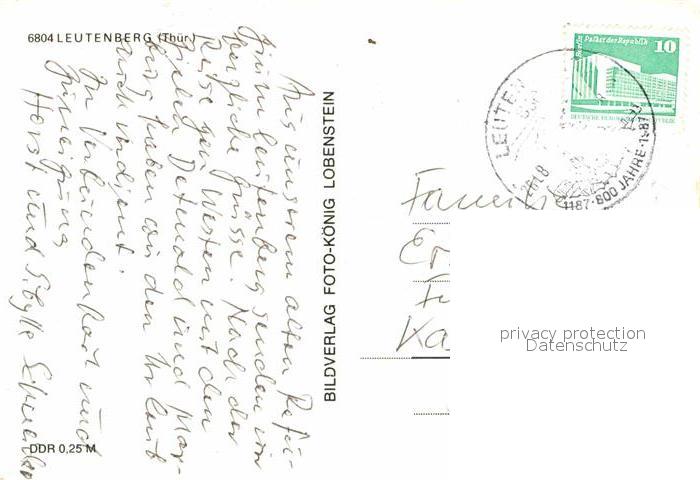 6804 LEUTENBERG (Thür.)
Aus unserem alten Refu-
gium Leutenberg senden wir
herzliche Grüsse. Nach der
Reise gen Westen mit den
Zielen Detmold und Mar-
burg haben wir den Urlaub
auch verdient.
In Verbundenheit und
Zuneigung
Horst und Sibylle
DDR 0,25 M
BILDVERLAG FOTO-KÖNIG LOBENSTEIN
Berlin Palast der Republik
10
DEUTSCHE DEMOKRATISCHE REPUBLIK
LEUTEN
1187·800 JAHRE·1987
Familie
Ka
privacy protection
Datenschutz